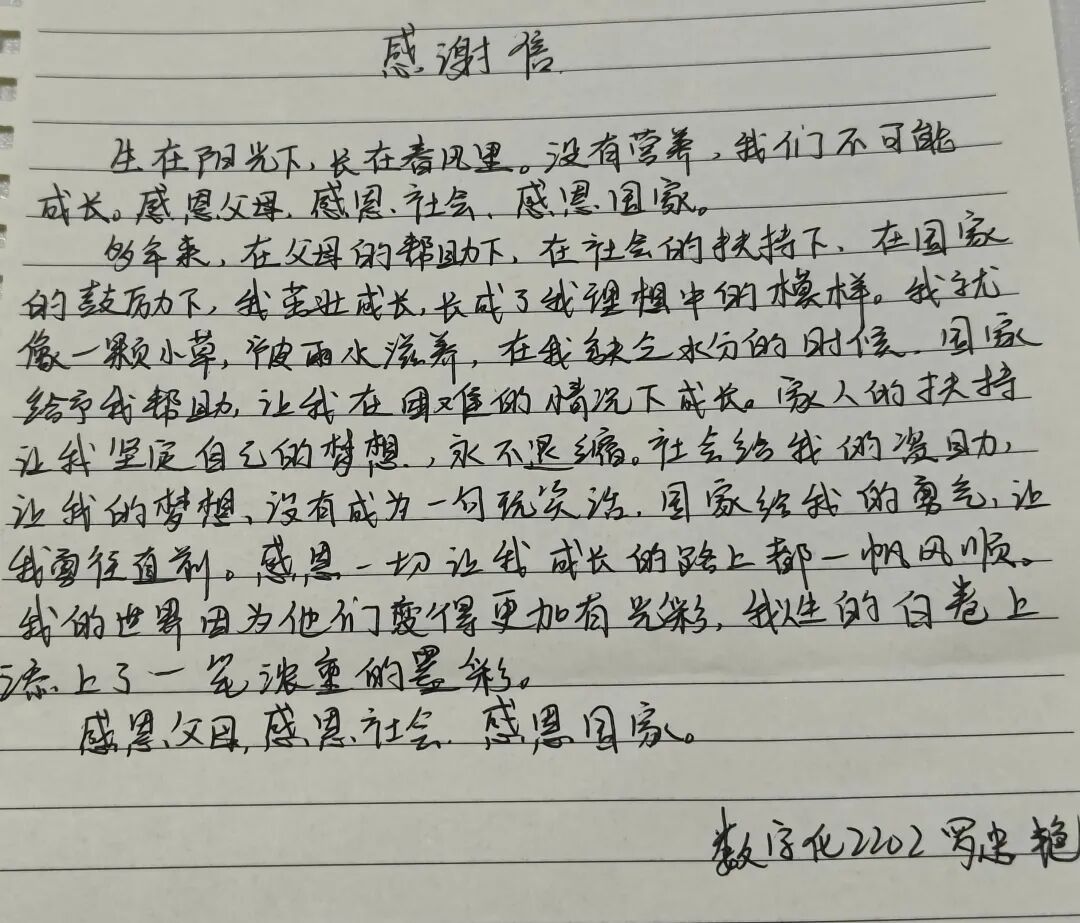 感谢信
生在阳光下，长在春风里。没有营养，我们不可能
成长。感恩父母，感恩社会，感恩国家。
多年来，在父母的帮助下，在社会的扶持下，在国家
的鼓励下，我茁壮成长，长成了我理想中的模样。我就
像一颗小草，被雨水滋养，在我缺乏水分的时候，国家
给予我帮助，让我在困难的情况下成长。家人的扶持
让我坚定自己的梦想，永不退缩。社会给我的资助，
让我的梦想，没有成为一句玩笑话，国家给我的勇气，让
我勇往直前。感恩一切让我成长的路上都一帆风顺。
我的世界因为他们变得更加有光彩，我人生的白卷上
添上了一笔浓重的墨彩。
感恩父母，感恩社会，感恩国家。
数字化2202 罗忠艳